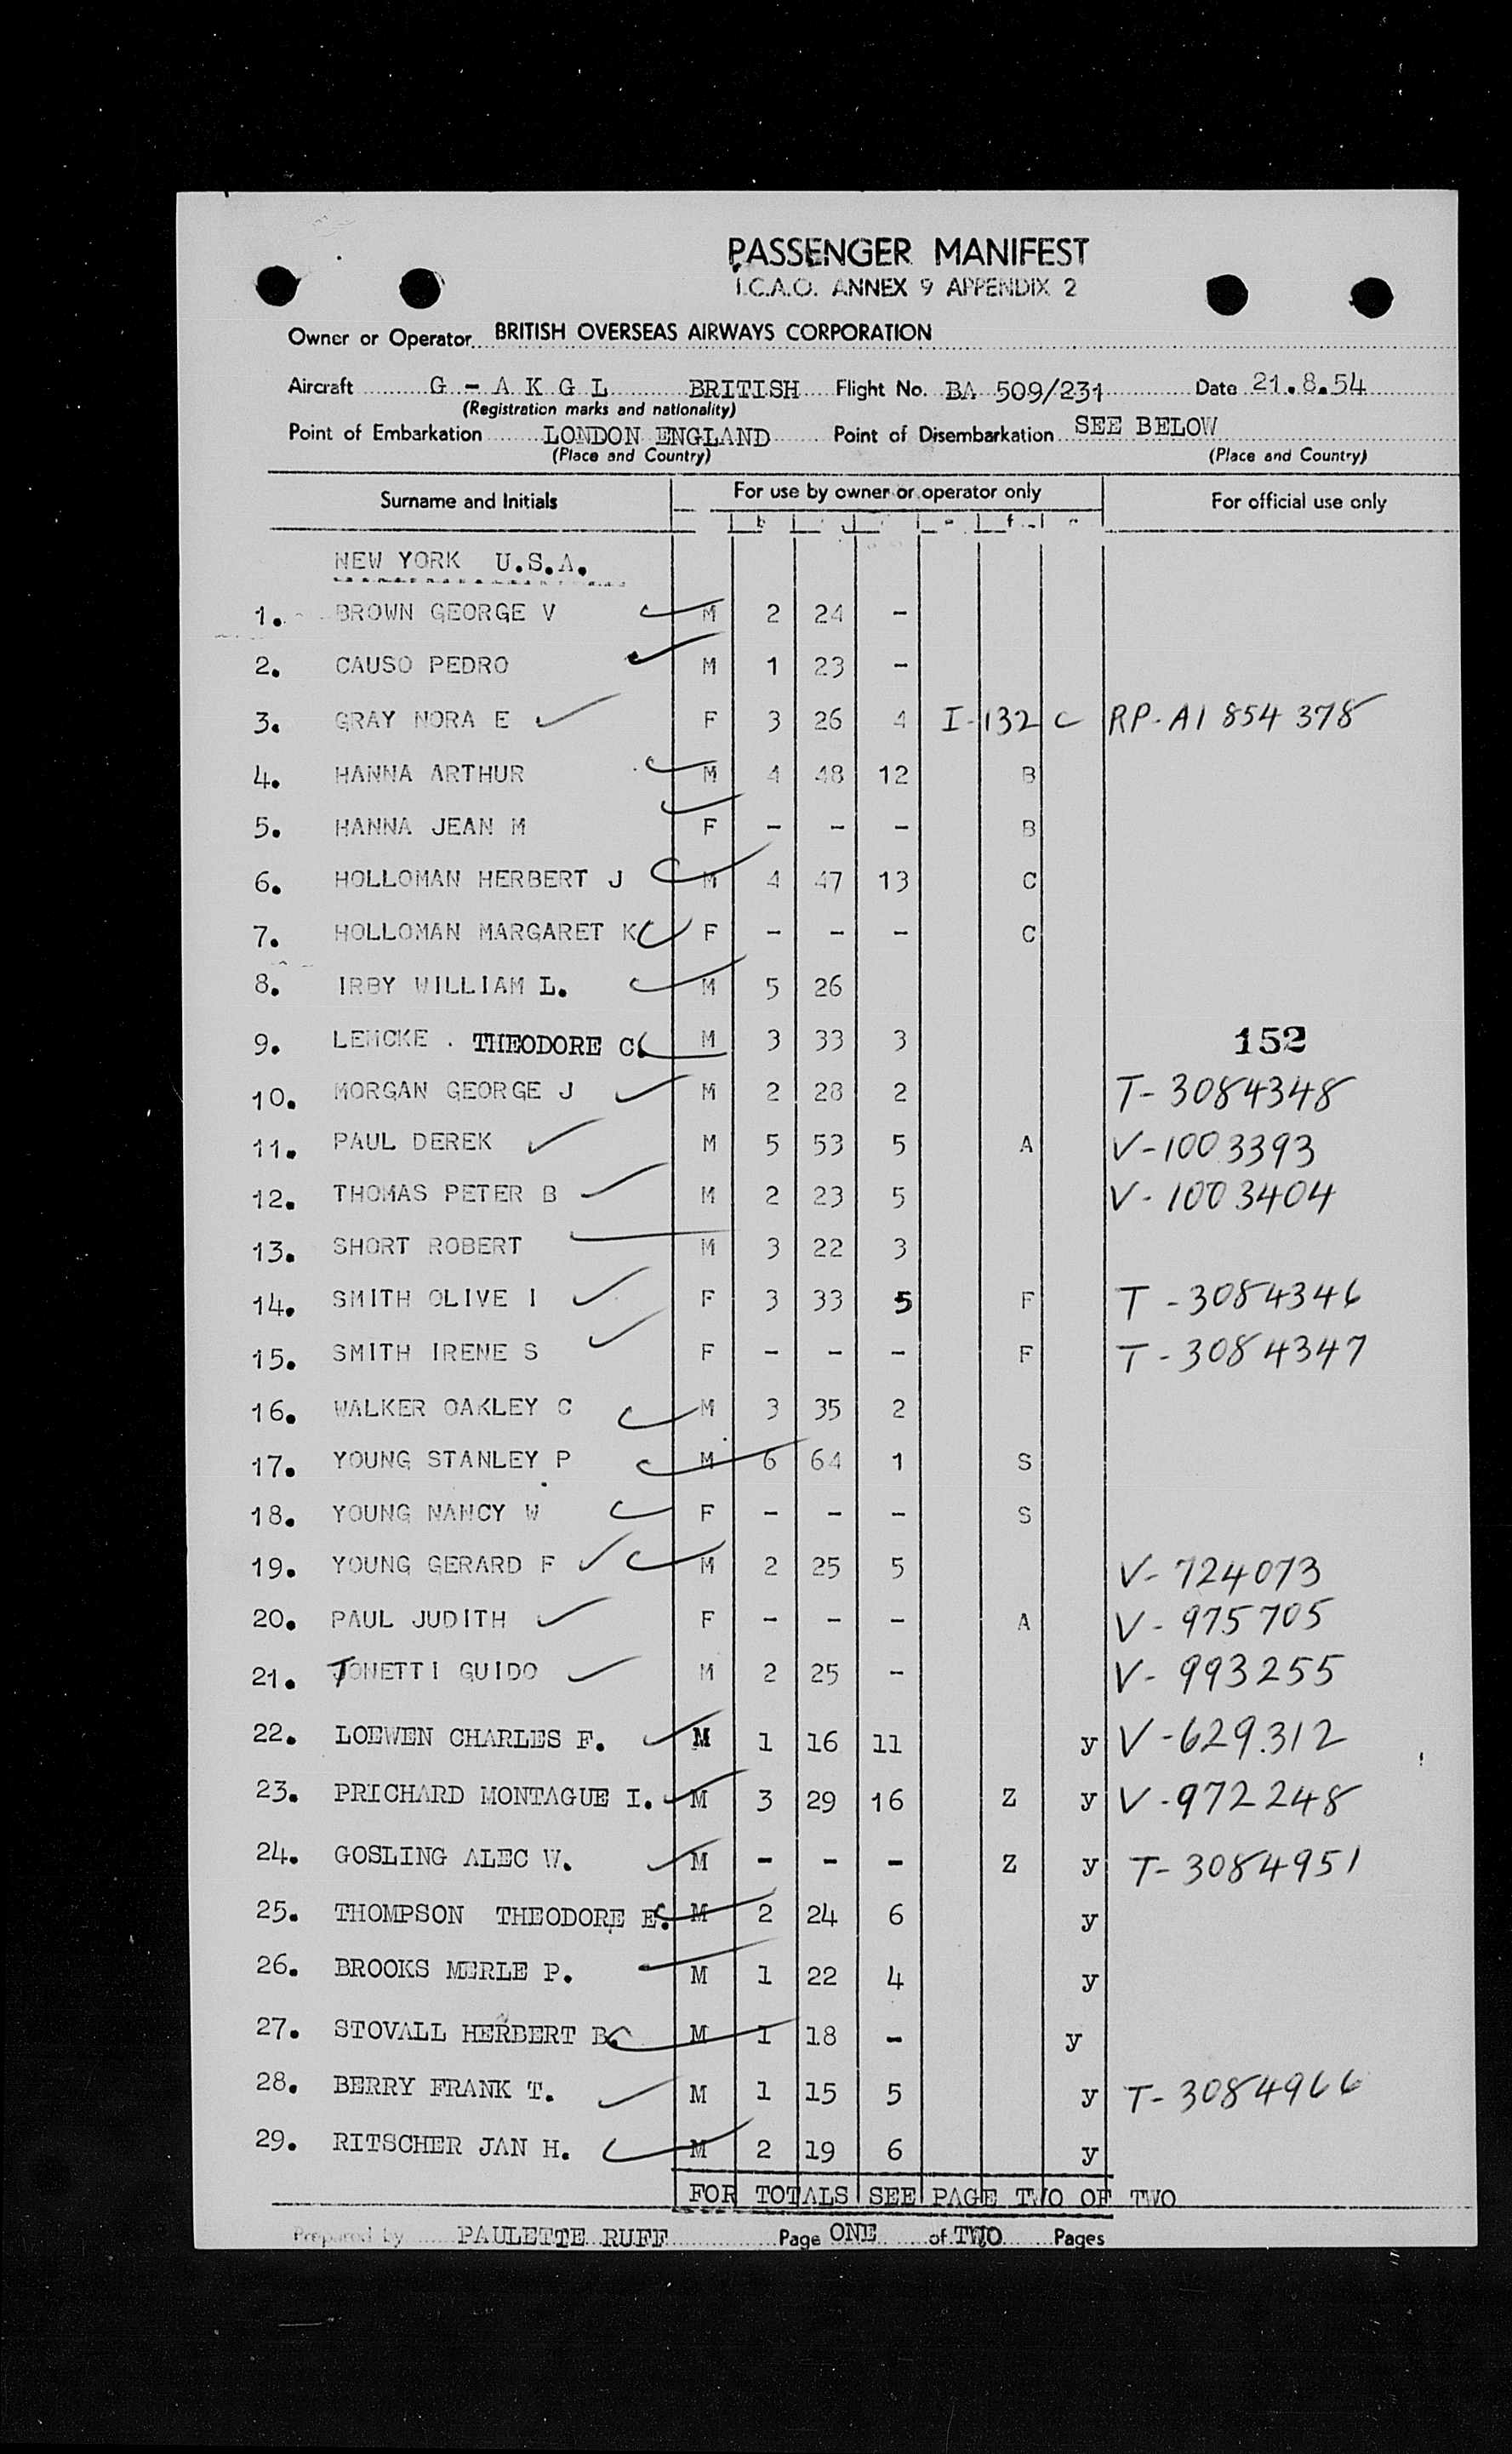 PASSENGER MANIFEST
I.C.A.O. ANNEX 9 APPENDIX 2
Owner or Operator BRITISH OVERSEAS AIRWAYS CORPORATION
Aircraft G - A K G L BRITISH Flight No. BA 509/231 Date 21.8.54
(Registration marks and nationality)
Point of Embarkation LONDON ENGLAND Point of Disembarkation SEE BELOW
(Place and Country) (Place and Country)
Surname and Initials For use by owner or operator only For official use only
NEW YORK U.S.A.
1. BROWN GEORGE V M 2 24 -
2. CAUSO PEDRO M 1 23 -
3. GRAY NORA E F 3 26 4 I-132 C RP-A1 854 378
4. HANNA ARTHUR M 4 48 12 B
5. HANNA JEAN M F - - - B
6. HOLLOMAN HERBERT J M 4 47 13 C
7. HOLLOMAN MARGARET K F - - - C
8. IRBY WILLIAM L. M 5 26
9. LEMCKE . THEODORE C. M 3 33 3 152
10. MORGAN GEORGE J M 2 28 2 T-3084348
11. PAUL DEREK M 5 53 5 A V-1003393
12. THOMAS PETER B M 2 23 5 V-1003404
13. SHORT ROBERT M 3 22 3
14. SMITH OLIVE I F 3 33 5 F T-3084346
15. SMITH IRENE S F - - - F T-3084347
16. WALKER OAKLEY C M 3 35 2
17. YOUNG STANLEY P M 6 64 1 S
18. YOUNG NANCY W F - - - S
19. YOUNG GERARD F M 2 25 5 V-724073
20. PAUL JUDITH F - - - A V-975705
21. TONETTI GUIDO M 2 25 - V-993255
22. LOEWEN CHARLES F. M 1 16 11 y V-629312
23. PRICHARD MONTAGUE I. M 3 29 16 Z y V-972248
24. GOSLING ALEC W. M - - - Z y T-3084951
25. THOMPSON THEODORE E. M 2 24 6 y
26. BROOKS MERLE P. M 1 22 4 y
27. STOVALL HERBERT B. M 1 18 - y
28. BERRY FRANK T. M 1 15 5 y T-3084966
29. RITSCHER JAN H. M 2 19 6 y
FOR TOTALS SEE PAGE TWO OF TWO
Prepared by PAULETTE RUFF Page ONE of TWO Pages